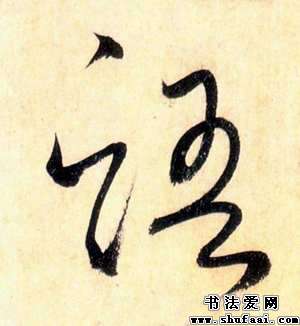 語
书法爱网
www.shufaai.com